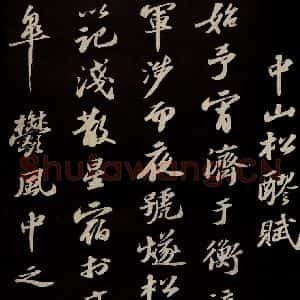 中山松醪賦
始予宵濟于衡
軍涉而夜號燧松
以記淺散星宿於
皋鬱風中之
Shufawang.CN